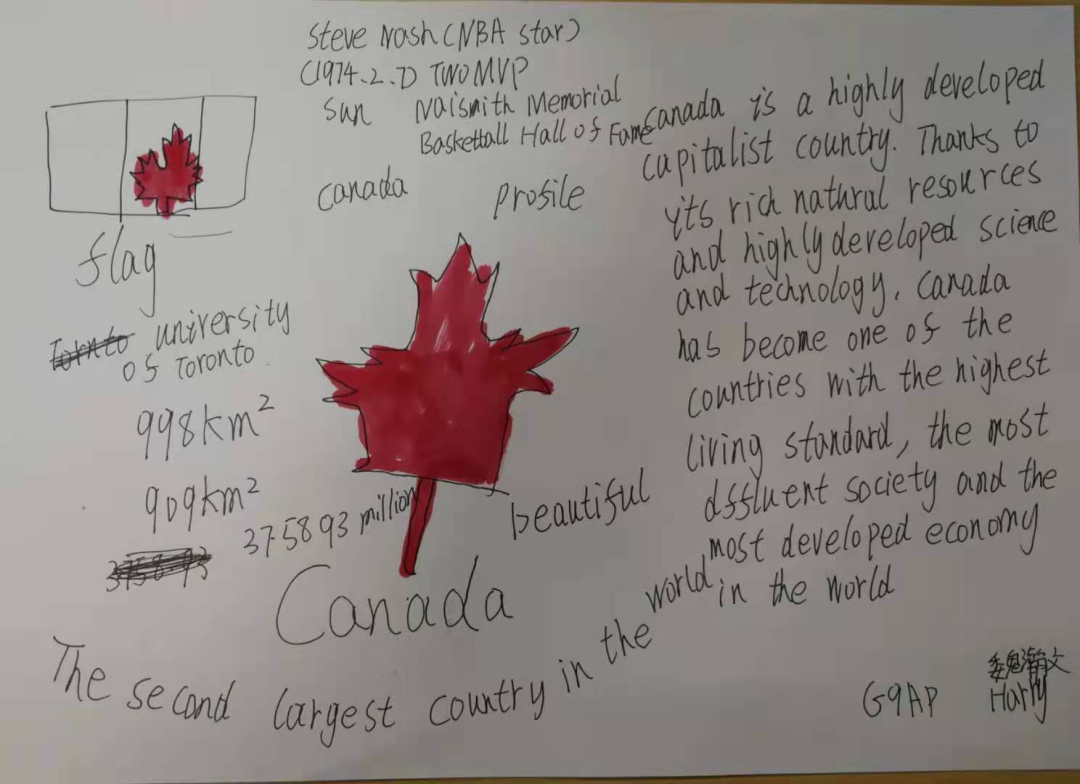 Steve Nash (NBA star)
(1974.2.7) TWO MVP
Sun Naismith Memorial
Baskettall Hall of Fame
canada profile
flag
university
of Toronto
998km²
909km²
37.5893 million
beautiful
Canada
The second largest country in the world
canada is a highly developed
capitalist country. Thanks to
it's rich natural resources
and highly developed science
and technology, Canada
has become one of the
countries with the highest
living standard, the most
affluent society and the
most developed economy
in the world
G9AP
魏瀚文
Harry